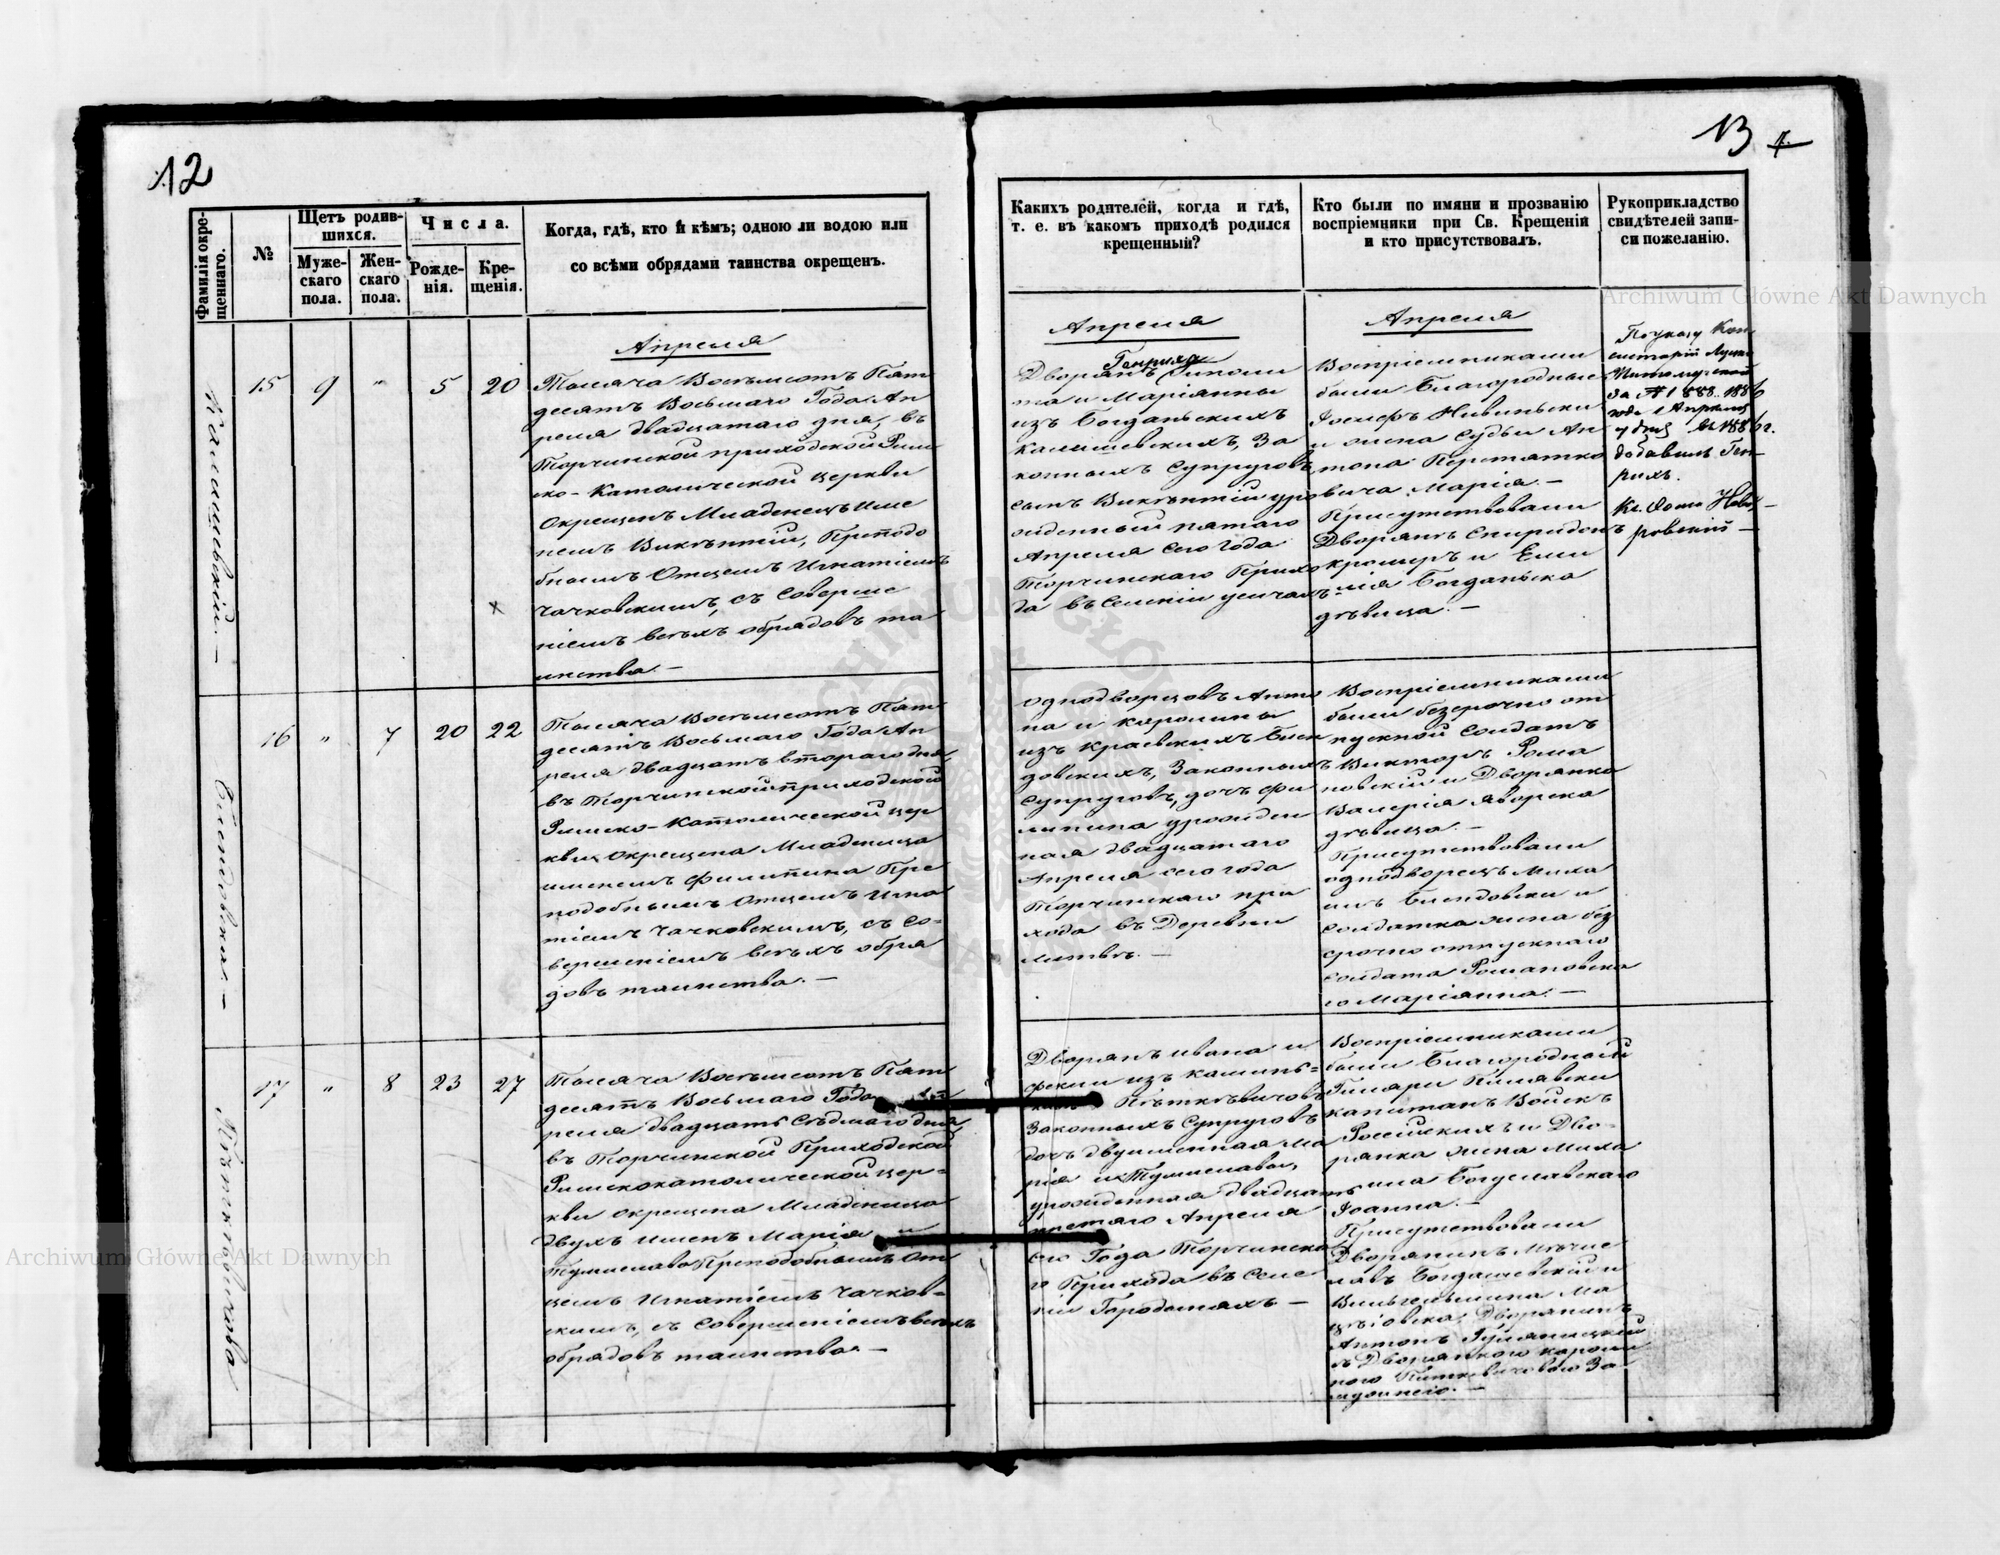 12
Фамилія окре-
щеннаго.
№
Щетъ родив-
шихся.
Муже-
скаго
пола.
Жен-
скаго
пола.
Числа.
Рожде-
нія.
Кре-
щенія.
Когда, гдѣ, кто и кѣмъ; одною ли водою или
со всѣми обрядами таинства окрещенъ.
Апреля
Калишевскій. —
15
9
"
5
20
Тысяча Восемьсотъ Пят
десятъ Восьмаго Года Ап
реля двадцатаго дня, въ
Торчинской приходской Рим
ско-Католической церкви
Окрещенъ Младенецъ Име
немъ Викентій, Преподо
бнымъ Отцемъ Игнатіемъ
Чачковскимъ, съ Соверше
ніемъ всѣхъ обрядовъ та
инства. —
16
"
7
20
22
Тысяча Восемьсотъ Пят
десятъ Восьмаго Года Ап
реля двадцать втораго дня,
въ Торчинской приходской
Римско-Католической цер
кви, Окрещена Младеница
именемъ Филипина Пре
подобнымъ Отцемъ Игна
тіемъ Чачковскимъ, съ Со-
вершеніемъ всѣхъ обря
довъ таинства. —
17
"
8
23
27
Тысяча Восемьсотъ Пят
десятъ Восьмаго Года Ап
реля двадцать седьмаго дня,
въ Торчинской Приходской
Римскокатолической цер-
кви окрещена Младеница
двухъ именъ Марія и
Преподобнымъ От
цемъ Игнатіемъ Чачков-
скимъ, съ Совершеніемъ всѣхъ
обрядовъ таинства. —
13
Какихъ родителей, когда и гдѣ,
т. е. въ какомъ приходѣ родился
крещенный?
Кто были по имяни и прозванію
воспріемники при Св. Крещеніи
и кто присутствовалъ.
Рукоприкладство
свидѣтелей запи-
си пожеланію.
Апреля
Генриха
Дворянъ Иполи
та и Маріянны
изъ Богданьскихъ
Калишевскихъ, За
конныхъ Супруговъ
сынъ Викентій уро
жденный пятаго
Апреля сего года
Торчинскаго Прихо
да въ Селеніи
Апреля
Воспріемниками
были Благородные
Іосифъ Нивиньски
и жена Судьи Ан
тона
Марія. —
Присутствовали
Дворянъ Спиридонъ
Кромеръ и Еми
лія Богданьска
дѣвица. —
По указу Кон
систоріи Луцко
Житомирской
за № 1888. 1886
года Апреля
дня въ 1886 г.
добавилъ Ген
рихъ.
Однодворцовъ Анто
на и Каролины
изъ Краевскихъ
довскихъ, Законныхъ
Супруговъ, дочь Фи
липина урожден
ная двадцатаго
Апреля сего года
Торчинскаго при
хода въ Деревни
Литвѣ. —
Воспріемниками
были безсрочно от
пускной Солдатъ
Викторъ Рома
новскій и Дворянка
Валерія Яворска
дѣвица. —
Присутствовали
однодворецъ Миха
илъ и
Солдатка жена без
срочно отпускнаго
Солдата Романовска
го Маріянна. —
Дворянъ Ивана и
Феклы изъ Каминь-
скихъ
Законныхъ Супруговъ
дочь двуименная Ма
рія и
урожденная двадцать
третяго Апреля
сего Года Торчинска
го Прихода въ Селе
ніи Городыщахъ —
Воспріемниками
были Благородный
Гиляри Пилявски
капитанъ Войскъ
Россійскихъ и Дво-
рянка жена Миха
ила Богуславскаго
Іоанна. —
Присутствовали
Дворянинъ Мечис
лавъ Богдашевскій и
Вильгельмина Ма
Дворянинъ
Антонъ Гуляницкій
съ Дворянкою Кароли
ною
Archiwum Główne Akt Dawnych
Archiwum Główne Akt Dawnych